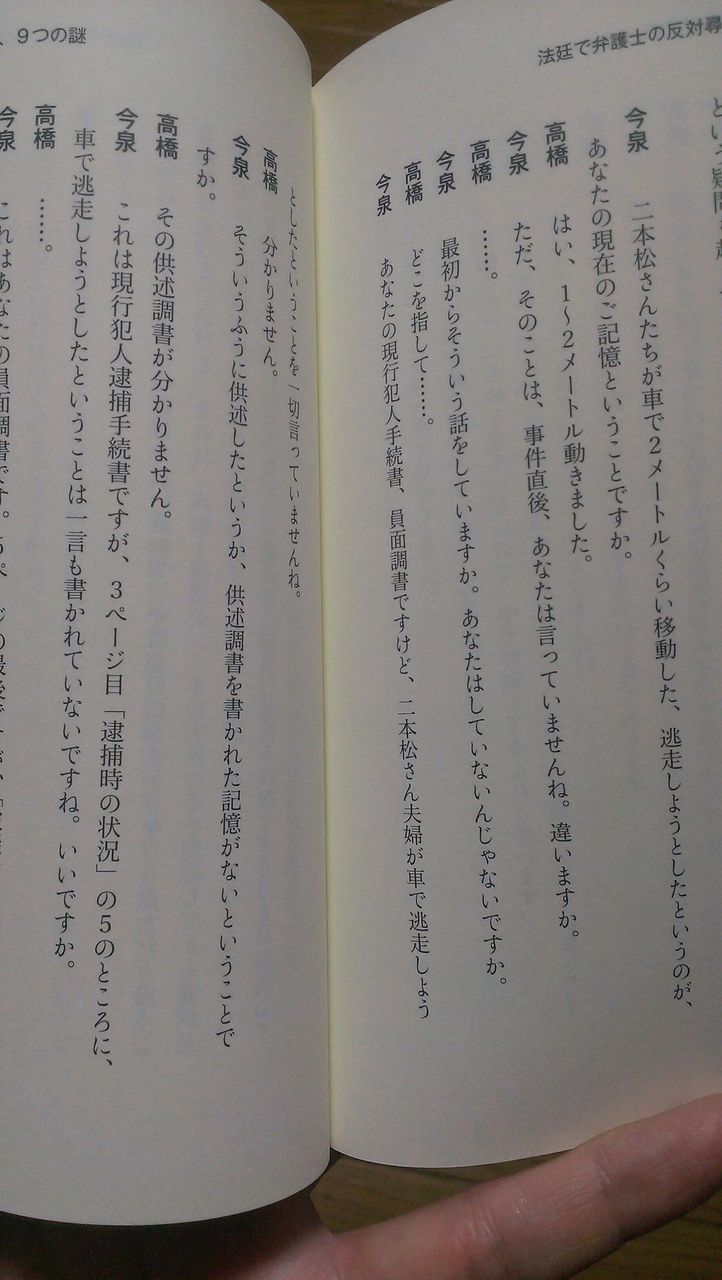 法廷で弁護士の反対尋
という疑問
今泉　二本松さんたちが車で2メートルくらい移動した、逃走しようとしたというのが、
あなたの現在のご記憶ということですか。
高橋　はい、1〜2メートル動きました。
今泉　ただ、そのことは、事件直後、あなたは言っていませんね。違いますか。
高橋　……。
今泉　最初からそういう話をしていますか。あなたはしていないんじゃないですか。
高橋　どこを指して……。
今泉　あなたの現行犯人手続書、員面調書ですけど、二本松さん夫婦が車で逃走しよう
、9つの謎
としたということを一切言っていませんね。
高橋　分かりません。
今泉　そういうふうに供述したというか、供述調書を書かれた記憶がないということで
すか。
高橋　その供述調書が分かりません。
今泉　これは現行犯人逮捕手続書ですが、3ページ目「逮捕時の状況」の5のところに、
車で逃走しようとしたということは一言も書かれていないですね。いいですか。
高橋　……。
今泉　これはあなたの員面調書です。